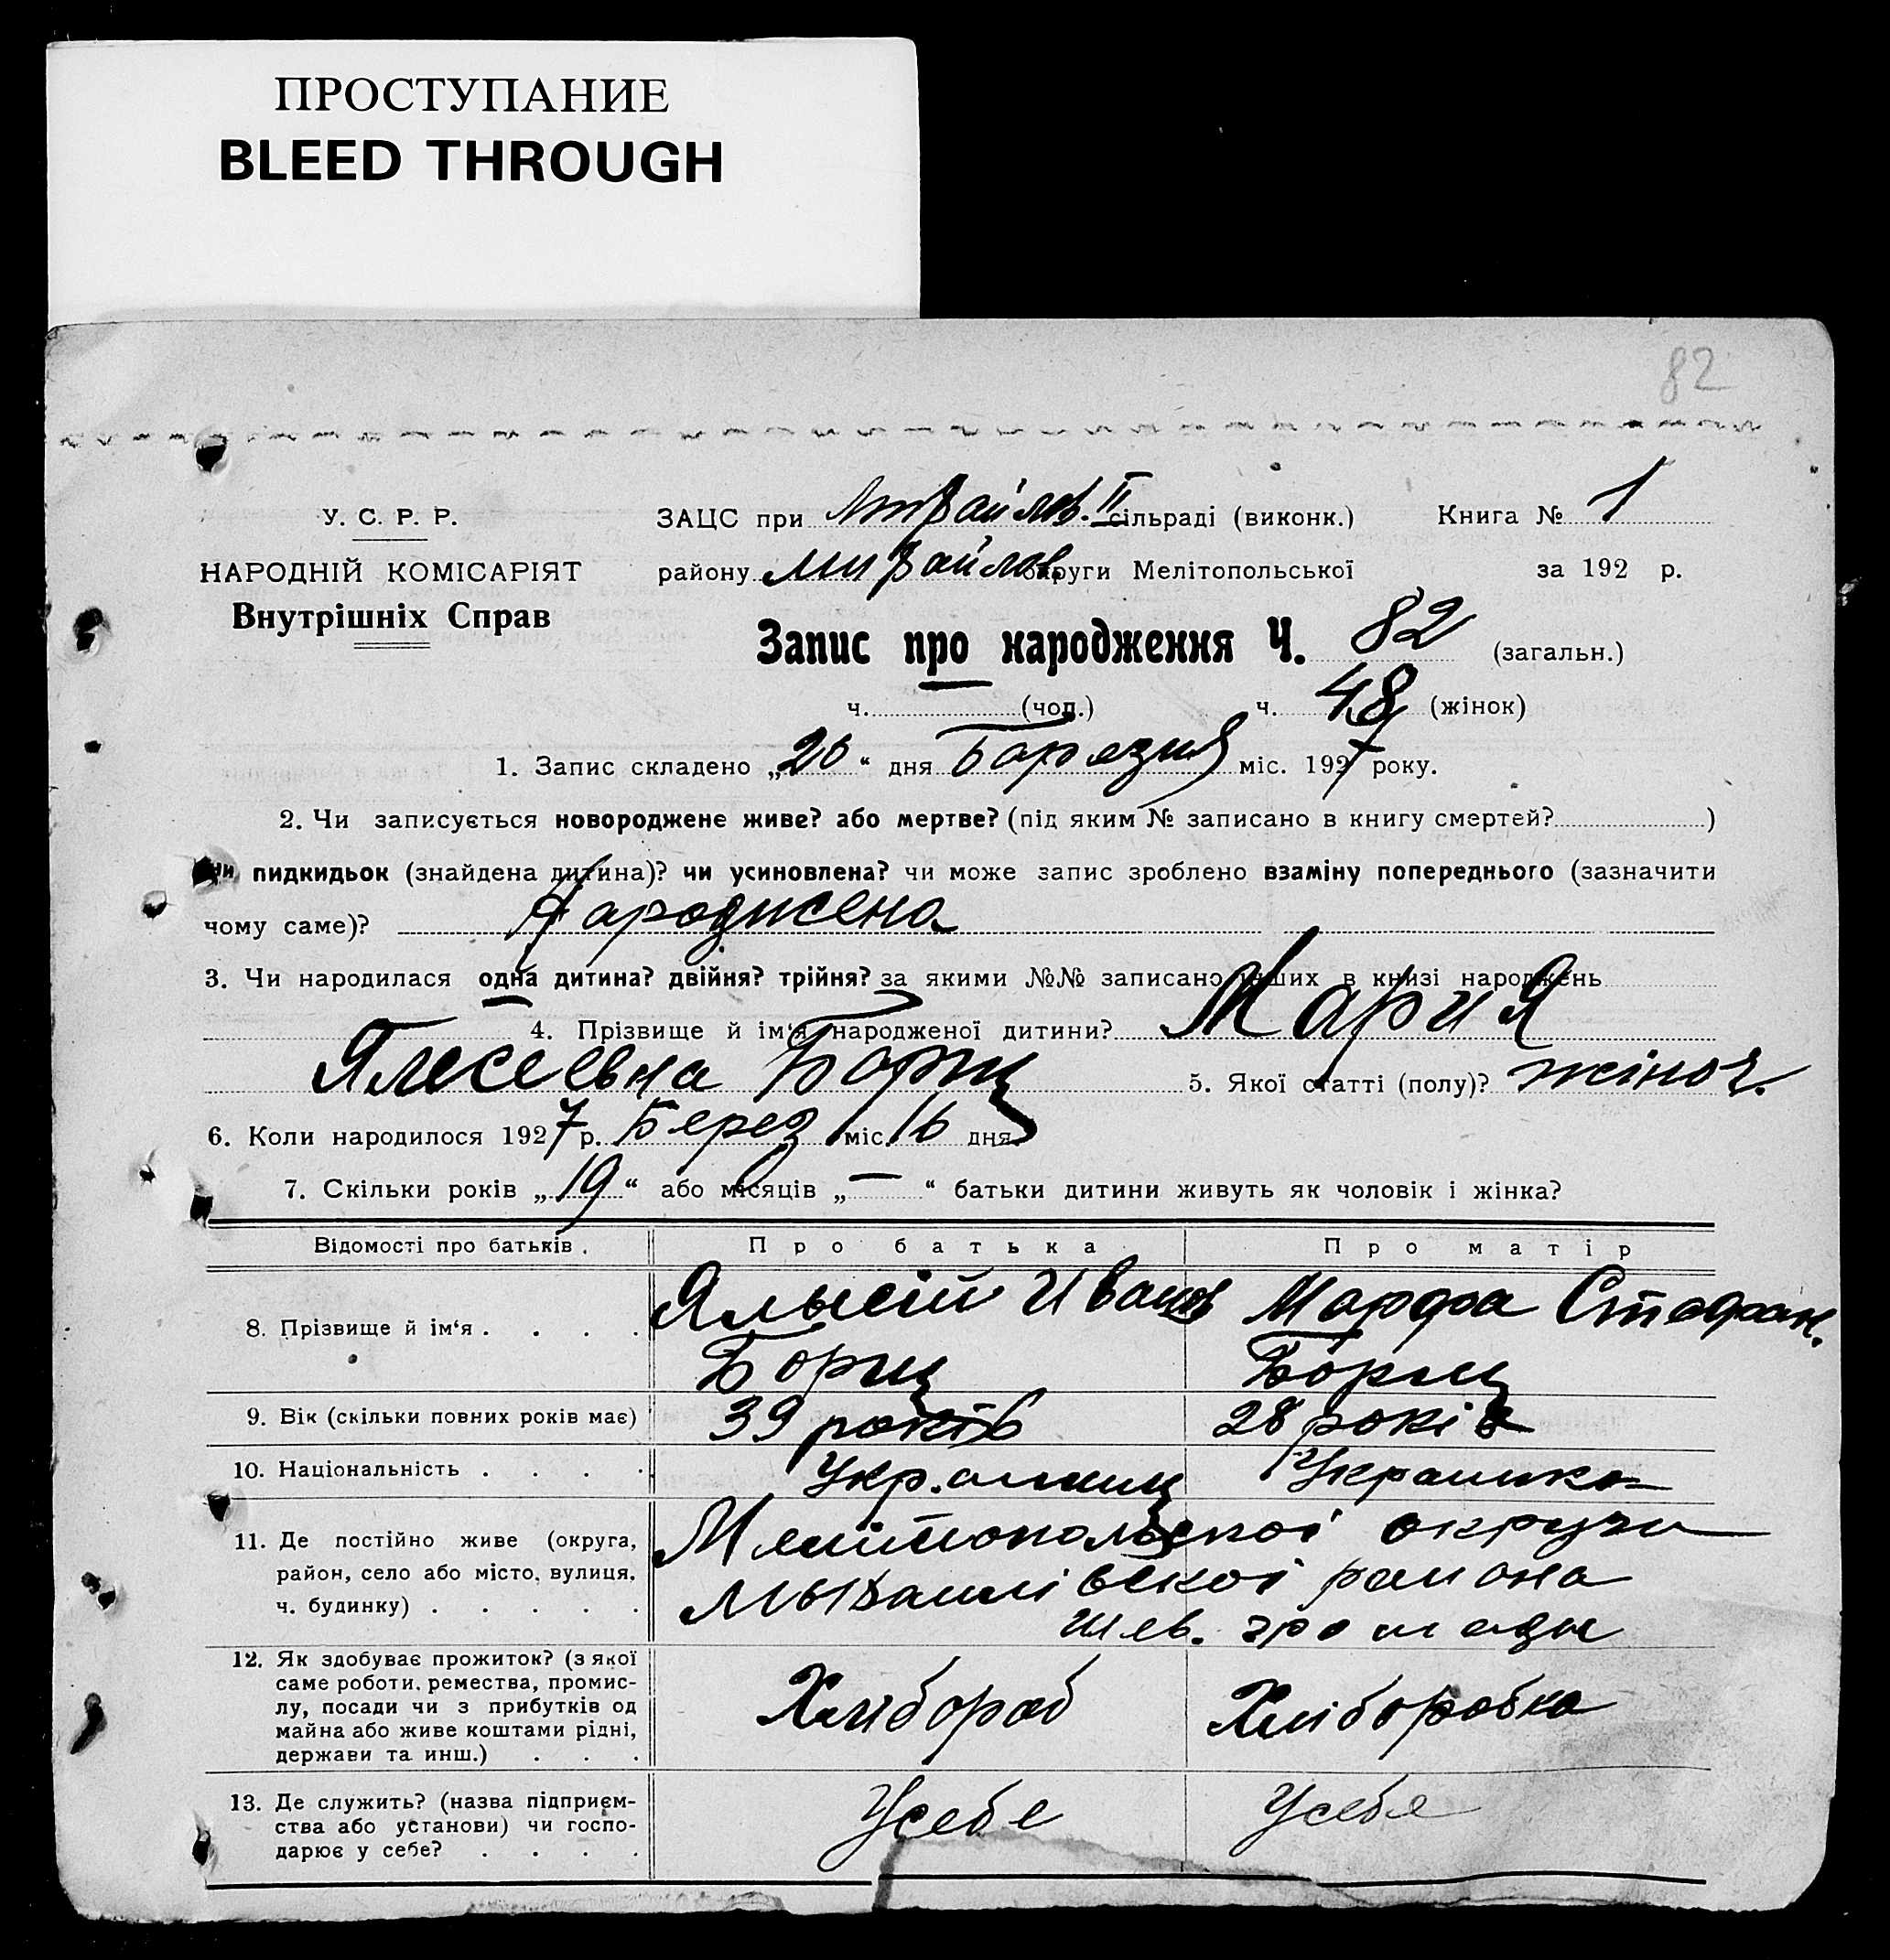 ПРОСТУПАНИЕ
BLEED THROUGH
82
У. С. Р. Р.
НАРОДНІЙ КОМІСАРІЯТ
Внутрішніх Справ
ЗАЦС при Михайлов. II сільраді (виконк.) Книга № 1
району Михайлов. округи Мелітопольської за 192 р.
Запис про народження Ч. 82 (загальн.)
ч. (чол.) ч. 48 (жінок)
1. Запис складено „26“ дня міс. 1927 року.
2. Чи записується новороджене живе? або мертве? (під яким № записано в книгу смертей? )
чи пидкидьок (знайдена дитина)? чи усиновлена? чи може запис зроблено взаміну попереднього (зазначити
чому саме)? Народжена
3. Чи народилася одна дитина? двійня? трійня? за якими №№ записано инших в книзі народжень
4. Прізвище й ім‘я народженої дитини? Мария
Алксеевна Борщ 5. Якої статті (полу)? жіноч.
6. Коли народилося 1927 р. Берез міс. 16 дня.
7. Скільки років „19“ або місяців „—“ батьки дитини живуть як чоловік і жінка?
Відомості про батьків. Про батька Про матір
8. Прізвище й ім‘я . . . . Алысій Иванов Марфа Стефан.
Борщ Борщ
9. Вік (скільки повних років має) 39 років 28 років
10. Національність . . . . Украинка
11. Де постійно живе (округа, район, село або місто, вулиця, ч. будинку) . . . . . Мелітопольскоі округи
района
громады
12. Як здобуває прожиток? (з якої
саме роботи, ремества, промис-
лу, посади чи з прибутків од
майна або живе коштами рідні,
держави та инш.) . . . Хлибороб Хліборобка
13. Де служить? (назва підприєм-
ства або установи) чи госпо-
дарює у себе? . . . . Усебе Усебе